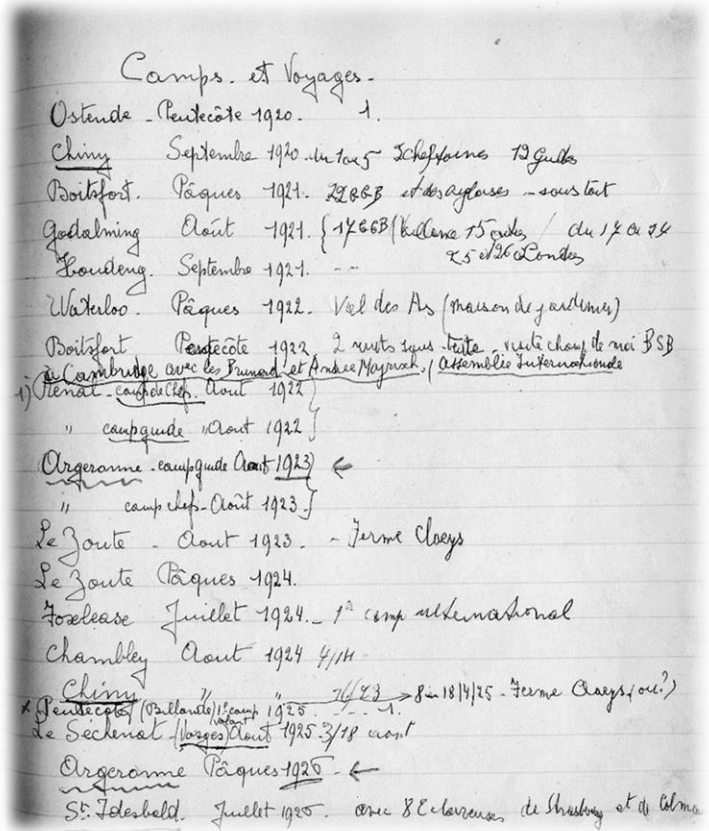 Camps. et Voyages.
Ostende - Pentecôte 1920. 1.
Chiny Septembre 1920. du 1 au 5 3 cheftaines 12 Guides
Boitsfort. Pâques 1921. 22 GGB et des anglaises - sous toit
Godalming Août 1921. { 17 GGB ( 15 du 17 au 24
25 et 26 à Londres
Houdeng. Septembre 1921. --
Waterloo. Pâques 1922. Val des As (maison de jardinier)
Boitsfort Pentecôte 1922 2 nuits sous tente - visite champ de BSB
Cambridge avec les Brunard et Andrée Mayrisch. / Assemblée Internationale
1) camp de chef. Aout 1922 }
" camp guide " Aout 1922 }
Argeronne - camp guide Aout 1923 } ←
" camp chefs - Août 1923. }
Le Zoute - Aout 1923. - Ferme Claeys
Le Zoute Pâques 1924.
Foxlease Juillet 1924. - 1er camp international
Chambley Aout 1924 4/14
Chiny " " → 18/4/25 - Ferme Claeys (ou?)
x Pentecôte / 1er camp volant 1925 . --- 1.
Le Séchenat - (Vosges) Août 1925. 3/18 aout
Argeronne Pâques 1926 - ←
St. Idesbald. Juillet 1926. avec 8 Eclaireuses de Strasbourg et de Colma